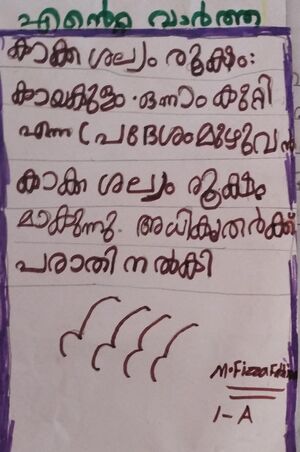 എന്റെ വാർത്ത
കാക്ക ശല്യം രൂക്ഷം:
കായകുളം . ഒന്നാം കുറ്റി
എന്ന പ്രദേശം മുഴുവൻ
കാക്ക ശല്യം രൂക്ഷ
മാകുന്നു. അധികൃതർക്ക്
പരാതി നൽകി
M.Fizza
1-A